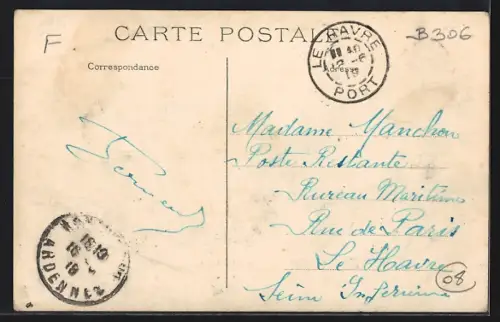 F
CARTE POSTALE
B306
Correspondance
Adresse
LE HAVRE
PORT
Madame Manchon
Poste Restante
Bureau Maritime
Rue de Paris
Le Havre
Seine Inférieure
ARDENNES
08